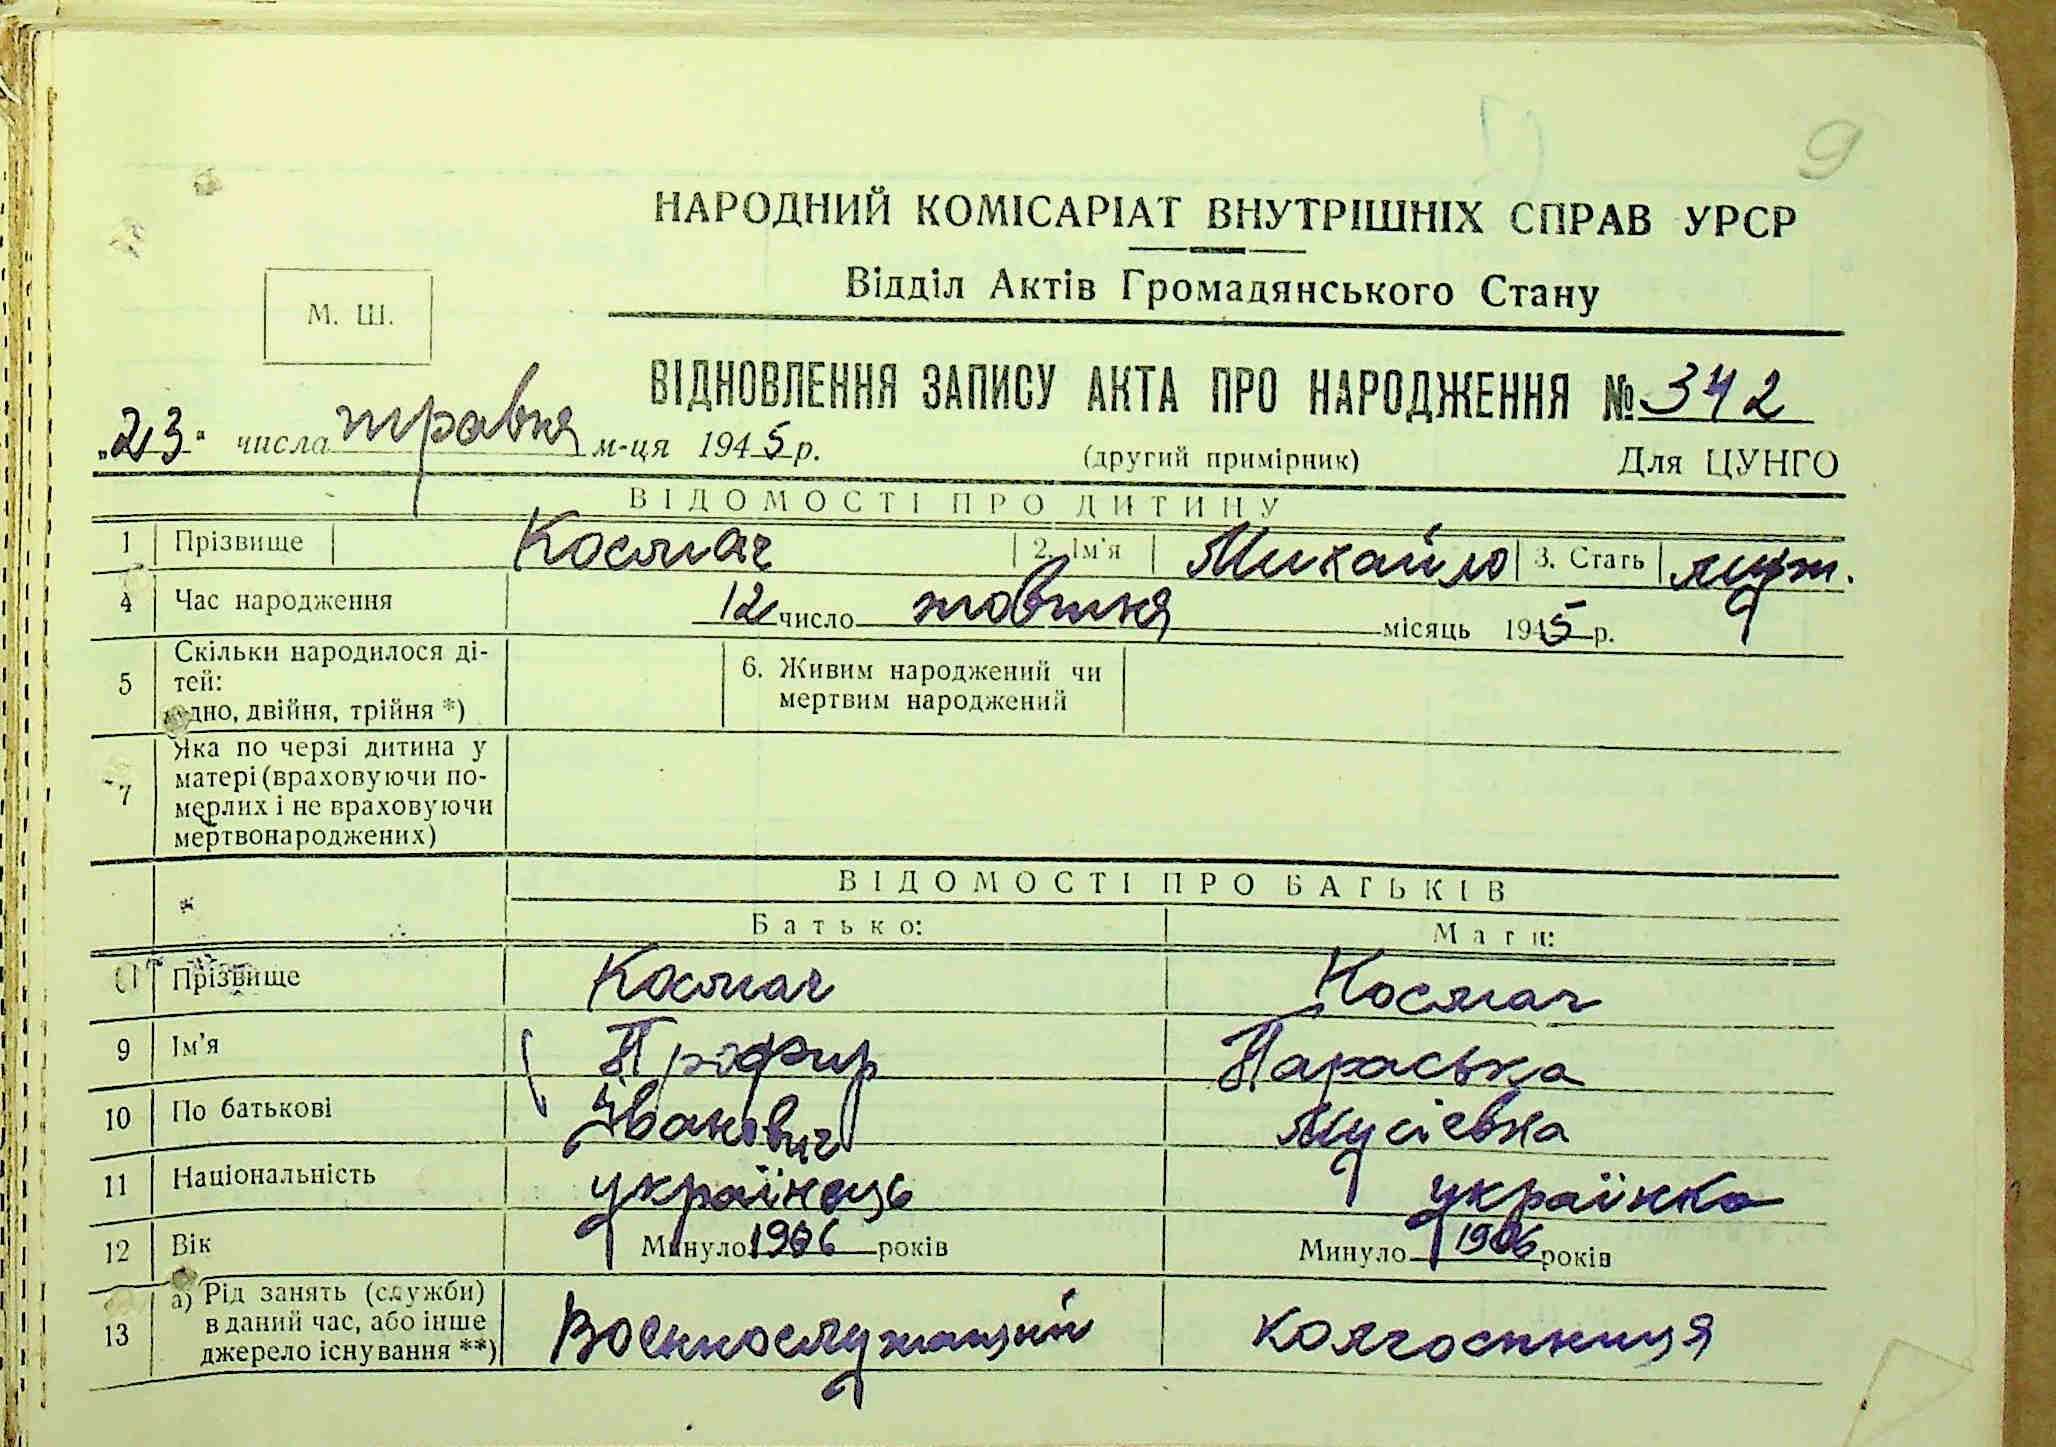 9
НАРОДНИЙ КОМІСАРІАТ ВНУТРІШНІХ СПРАВ УРСР
Відділ Актів Громадянського Стану
М. Ш.
ВІДНОВЛЕННЯ ЗАПИСУ АКТА ПРО НАРОДЖЕННЯ № 342
„23" числа травня м-ця 1945 р. (другий примірник) Для ЦУНГО
ВІДОМОСТІ ПРО ДИТИНУ
1 Прізвище Космач 2. Ім'я Михайло 3. Стать муж.
4 Час народження 12 число жовтня місяць 1945 р.
5 Скільки народилося ді-
тей:
одно, двійня, трійня *)
6. Живим народжений чи
мертвим народжений
7 Яка по черзі дитина у
матері (враховуючи по-
мерлих і не враховуючи
мертвонароджених)
ВІДОМОСТІ ПРО БАТЬКІВ
Батько: Мати:
Прізвище Космач Космач
9 Ім'я Профир Параська
10 По батькові Іванович Мусієвна
11 Національність українець українка
12 Вік Минуло 1906 років Минуло 1906 років
13 а) Рід занять (служби)
в даний час, або інше
джерело існування **)
Военнослужащий колгоспниця